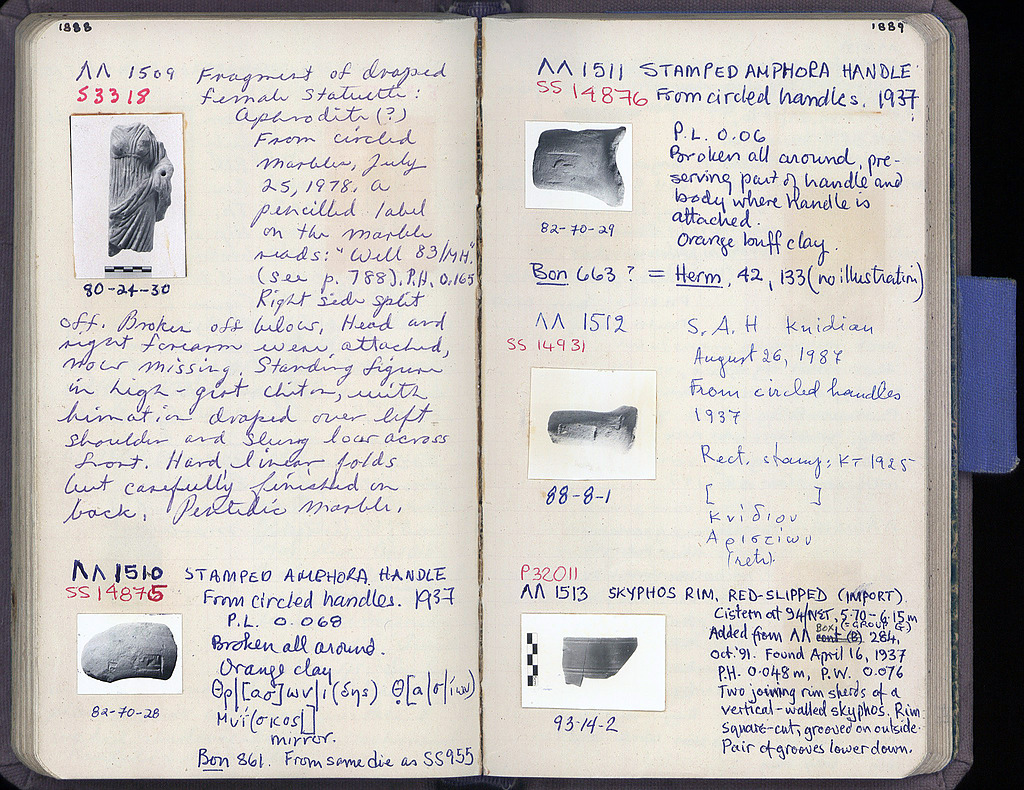 1888
ΛΛ 1509 Fragment of draped
S3318 female statuette:
Aphrodite (?)
From circled
marbles, July
25, 1978. A
pencilled label
on the marble
reads: "Well 83/MH".
(see p. 788). P.H. 0.165
Right side split
80-24-30
off. Broken off below. Head and
right forearm were attached,
now missing. Standing figure
in high-girt chiton, with
himation draped over left
shoulder and slung low across
front. Hard, linear folds
but carefully finished on
back. Pentelic marble.
ΛΛ 1510 STAMPED AMPHORA HANDLE
SS 14875 From circled handles. 1937
P.L. 0.068
Broken all around.
Orange clay
82-70-28
mirror.
Bon 861. From same die as SS955
1889
ΛΛ 1511 STAMPED AMPHORA HANDLE
SS 14876 From circled handles. 1937
P.L. 0.06
Broken all around, pre-
serving part of handle and
body where handle is
attached.
Orange buff clay.
82-70-29
Bon 663 ? = Herm, 42, 133 (no illustration)
ΛΛ 1512 S.A.H Knidian
SS 14931
August 26, 1987
From circled handles
1937
Rect. stamp: KT 1925
88-8-1
[ ]
Κνίδιον
Αριστίων
(retr).
P32011
ΛΛ 1513 SKYPHOS RIM, RED-SLIPPED (IMPORT).
Cistern at 94/ΝΣΤ, 5.70-6.15m
BOX 1 (=GROUP G)
Added from ΛΛ cont (B) 284,
Oct.'91. Found April 16, 1937
P.H. 0.048m, P.W. 0.076
Two joining rim sherds of a
vertical-walled skyphos. Rim
square-cut, grooved on outside.
Pair of grooves lower down.
93-14-2